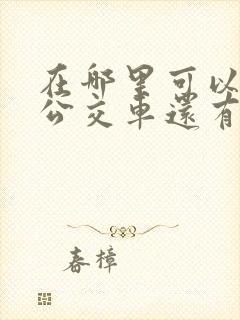 在哪里可以
公交車還有
春樟